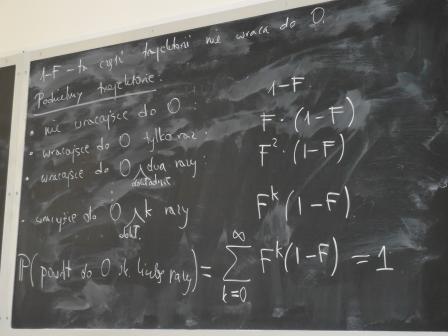 1-F - ta część trajektorii nie wraca do 0.
Podzielmy trajektorie:
• nie wracające do 0 : 1-F
• wracające do 0 tylko raz : F·(1-F)
• wracające do 0 dokładnie dwa razy : F²·(1-F)
• wracające do 0 dokł. k razy F^k(1-F)
P(powrót do 0 sk. liczbę razy) = ∑_{k=0}^{∞} F^k(1-F) = 1